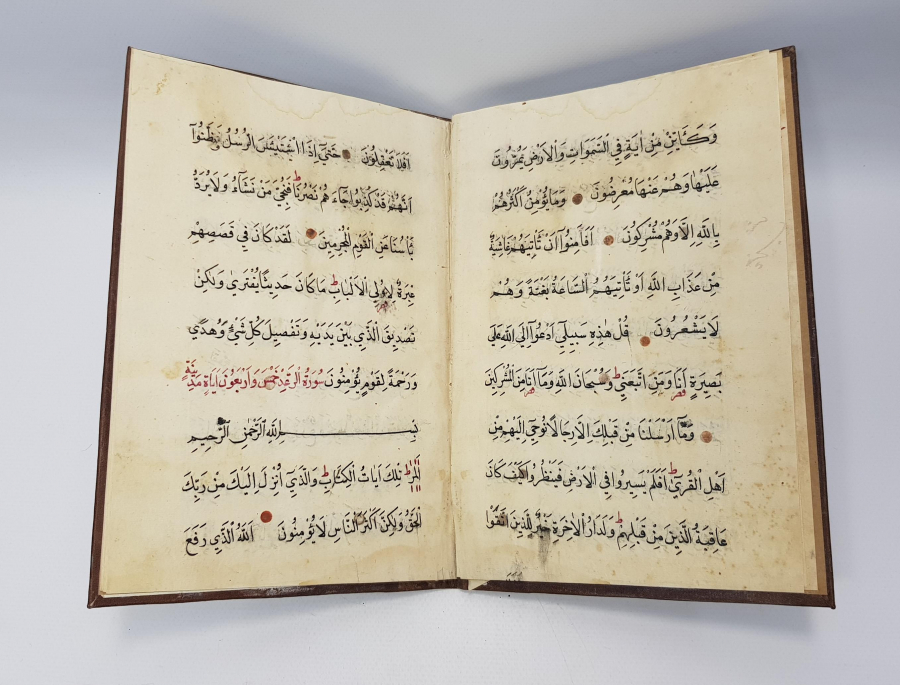 وَكَاَيِّنْ مِنْ اٰيَةٍ فِي السَّمٰوَاتِ وَالْاَرْضِ يَمُرُّونَ
عَلَيْهَا وَهُمْ عَنْهَا مُعْرِضُونَ وَمَا يُؤْمِنُ اَكْثَرُهُمْ
بِاللّٰهِ اِلَّا وَهُمْ مُشْرِكُونَ اَفَاَمِنُوا اَنْ تَاْتِيَهُمْ غَاشِيَةٌ
مِنْ عَذَابِ اللّٰهِ اَوْ تَاْتِيَهُمُ السَّاعَةُ بَغْتَةً وَهُمْ
لَا يَشْعُرُونَ قُلْ هٰذِهِ سَبِيلِي اَدْعُوا اِلَى اللّٰهِ عَلٰى
بَصِيرَةٍ اَنَا وَمَنِ اتَّبَعَنِي ط وَسُبْحَانَ اللّٰهِ وَمَا اَنَا مِنَ الْمُشْرِكِينَ
وَمَا اَرْسَلْنَا مِنْ قَبْلِكَ اِلَّا رِجَالًا نُوحِي اِلَيْهِمْ مِنْ
اَهْلِ الْقُرٰى ط اَفَلَمْ يَسِيرُوا فِي الْاَرْضِ فَيَنْظُرُوا كَيْفَ كَانَ
عَاقِبَةُ الَّذِينَ مِنْ قَبْلِهِمْ ط وَلَدَارُ الْاٰخِرَةِ خَيْرٌ لِلَّذِينَ اتَّقَوْا
اَفَلَا تَعْقِلُونَ حَتّٰى اِذَا اسْتَيْئَسَ الرُّسُلُ وَظَنُّوا
اَنَّهُمْ قَدْ كُذِبُوا جَاءَهُمْ نَصْرُنَا فَنُجِّيَ مَنْ نَشَاءُ وَلَا يُرَدُّ
بَاْسُنَا عَنِ الْقَوْمِ الْمُجْرِمِينَ لَقَدْ كَانَ فِي قَصَصِهِمْ
عِبْرَةٌ لِاُولِي الْاَلْبَابِ ط مَا كَانَ حَدِيثًا يُفْتَرٰى وَلٰكِنْ
تَصْدِيقَ الَّذِي بَيْنَ يَدَيْهِ وَتَفْصِيلَ كُلِّ شَيْءٍ وَهُدًى
وَرَحْمَةً لِقَوْمٍ يُؤْمِنُونَ سُورَةُ الرَّعْدِ خَمْسٌ وَاَرْبَعُونَ اٰيَةً مَدَنِيَّةٌ
بِسْمِ اللّٰهِ الرَّحْمٰنِ الرَّحِيمِ
الٓمٓرٰ تِلْكَ اٰيَاتُ الْكِتَابِ ط وَالَّذِي اُنْزِلَ اِلَيْكَ مِنْ رَبِّكَ
الْحَقُّ وَلٰكِنَّ اَكْثَرَ النَّاسِ لَا يُؤْمِنُونَ اَللّٰهُ الَّذِي رَفَعَ